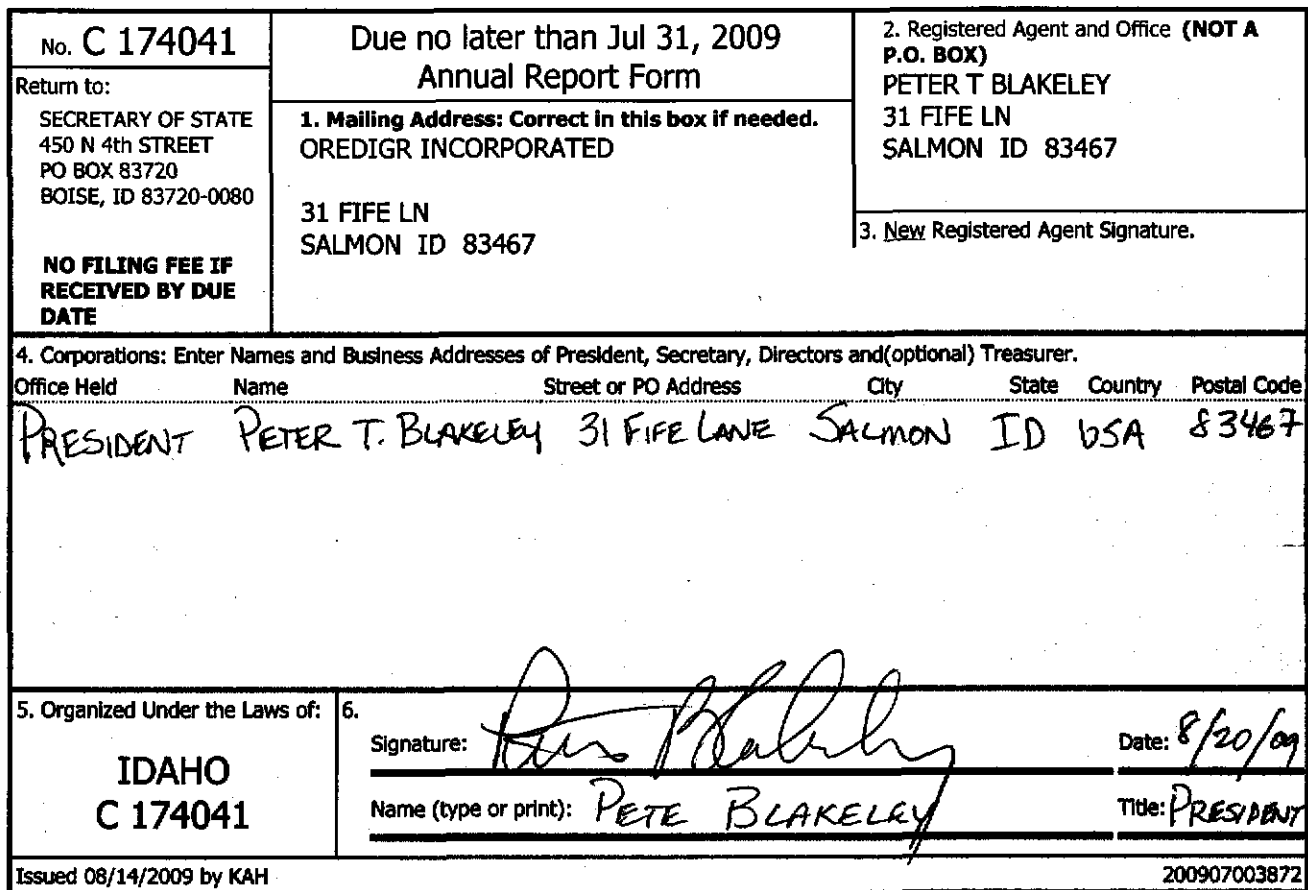 No. C 174041
Return to:
SECRETARY OF STATE
450 N 4th STREET
PO BOX 83720
BOISE, ID 83720-0080
NO FILING FEE IF
RECEIVED BY DUE
DATE
Due no later than Jul 31, 2009
Annual Report Form
1. Mailing Address: Correct in this box if needed.
OREDIGR INCORPORATED
31 FIFE LN
SALMON ID 83467
2. Registered Agent and Office (NOT A
P.O. BOX)
PETER T BLAKELEY
31 FIFE LN
SALMON ID 83467
3. New Registered Agent Signature.
4. Corporations: Enter Names and Business Addresses of President, Secretary, Directors and(optional) Treasurer.
Office Held Name Street or PO Address City State Country Postal Code
PRESIDENT PETER T. BLAKELEY 31 FIFE LANE SALMON ID USA 83467
5. Organized Under the Laws of:
IDAHO
C 174041
6.
Signature: Pete Blakeley
Date: 8/20/09
Name (type or print): PETE BLAKELEY
Title: PRESIDENT
Issued 08/14/2009 by KAH
200907003872